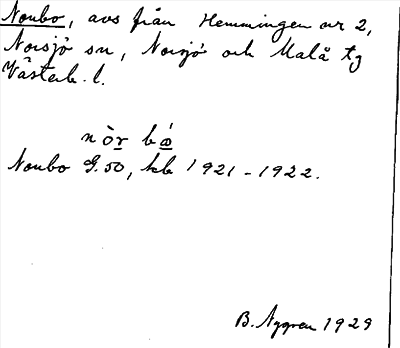 Norrbo, avs från Hemmingen nr 2,
Norsjö sn, Norsjö och Malå tg
Västerb. l.
nòr bó
Norrbo G.50, kb 1921-1922.
B. Nygren 1929